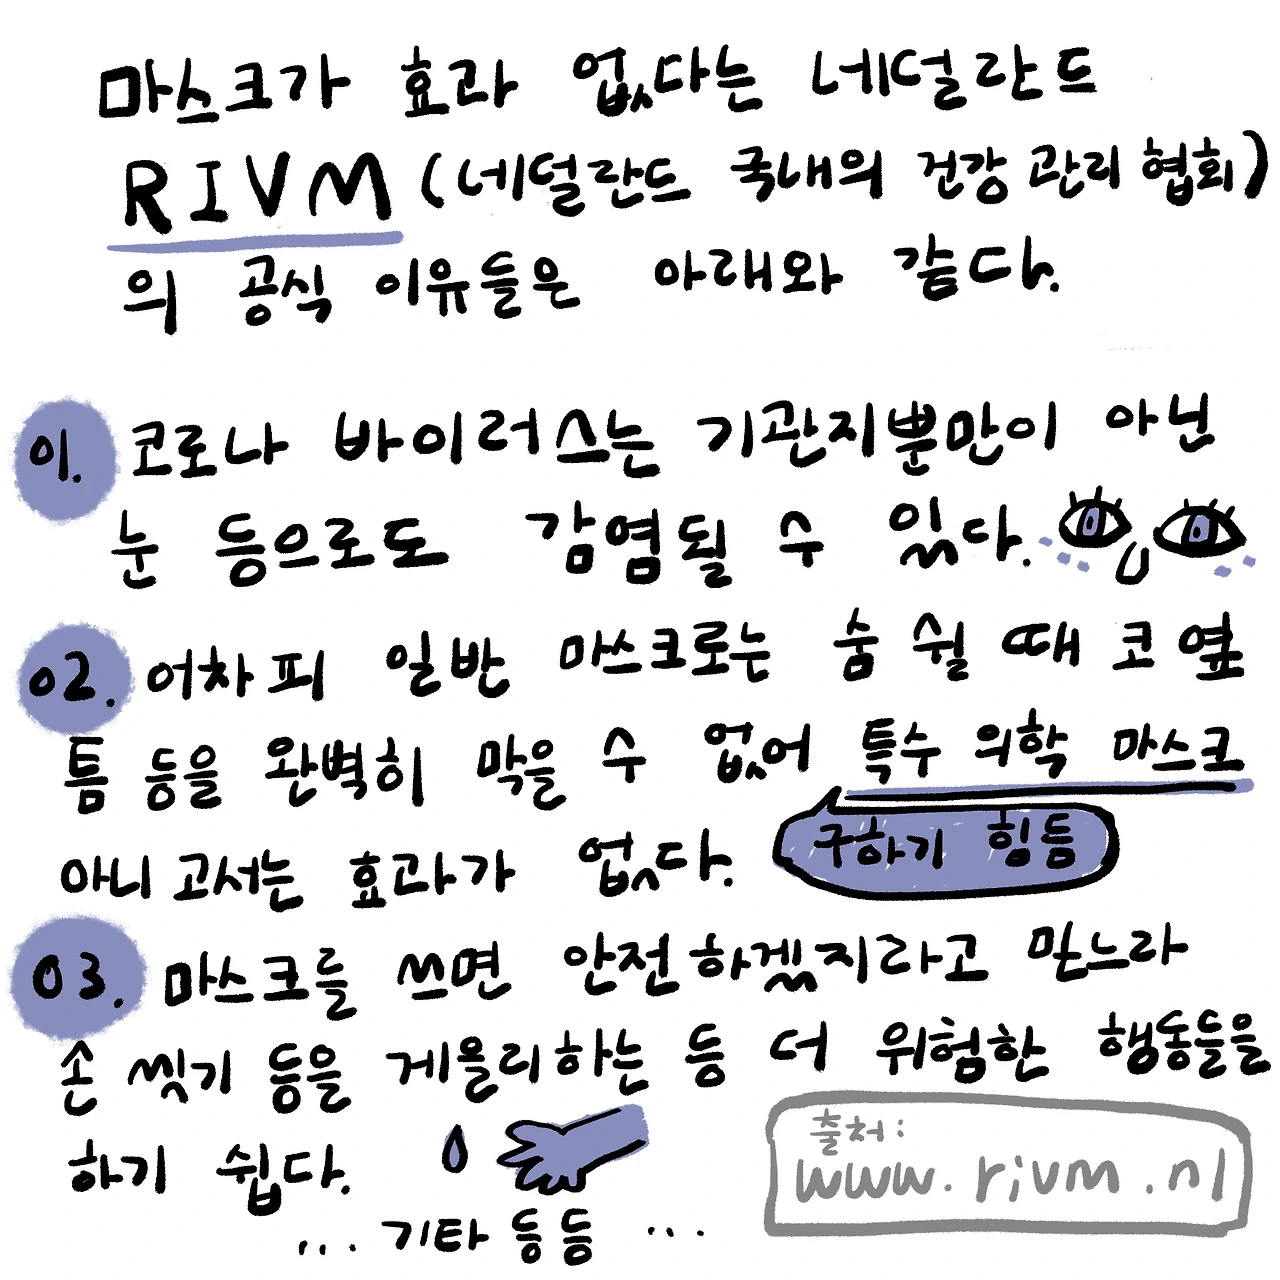 마스크가 효과 없다는 네덜란드
RIVM (네덜란드 국내의 건강 관리 협회)
의 공식 이유들은 아래와 같다.
01. 코로나 바이러스는 기관지뿐만이 아닌
눈 등으로도 감염될 수 있다.
02. 어차피 일반 마스크로는 숨 쉴 때 코 옆
틈 등을 완벽히 막을 수 없어 특수 의학 마스크
아니고서는 효과가 없다.
구하기 힘듬
03. 마스크를 쓰면 안전하겠지라고 믿느라
손 씻기 등을 게을리하는 등 더 위험한 행동들을
하기 쉽다.
... 기타 등등 ...
출처:
www.rivm.nl